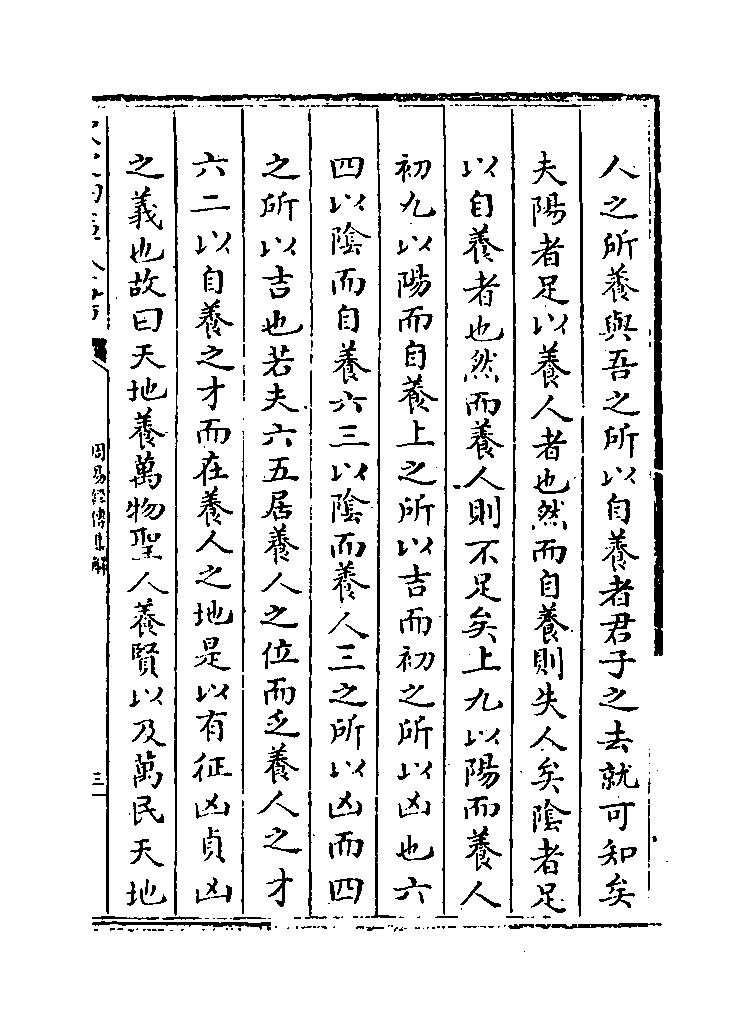 人之所養與吾之所以自養者君子之去就可知矣
夫陽者足以養人者也然而自養則失人矣隂者足
以自養者也然而養人則不足矣上九以陽而養人
初九以陽而自養上之所以吉而初之所以凶也六
四以隂而自養六三以隂而養人三之所以凶而四
之所以吉也若夫六五居養人之位而乏養人之才
六二以自養之才而在養人之地是以有征凶貞凶
之義也故曰天地養萬物聖人養賢以及萬民天地
周易經傳集解
三